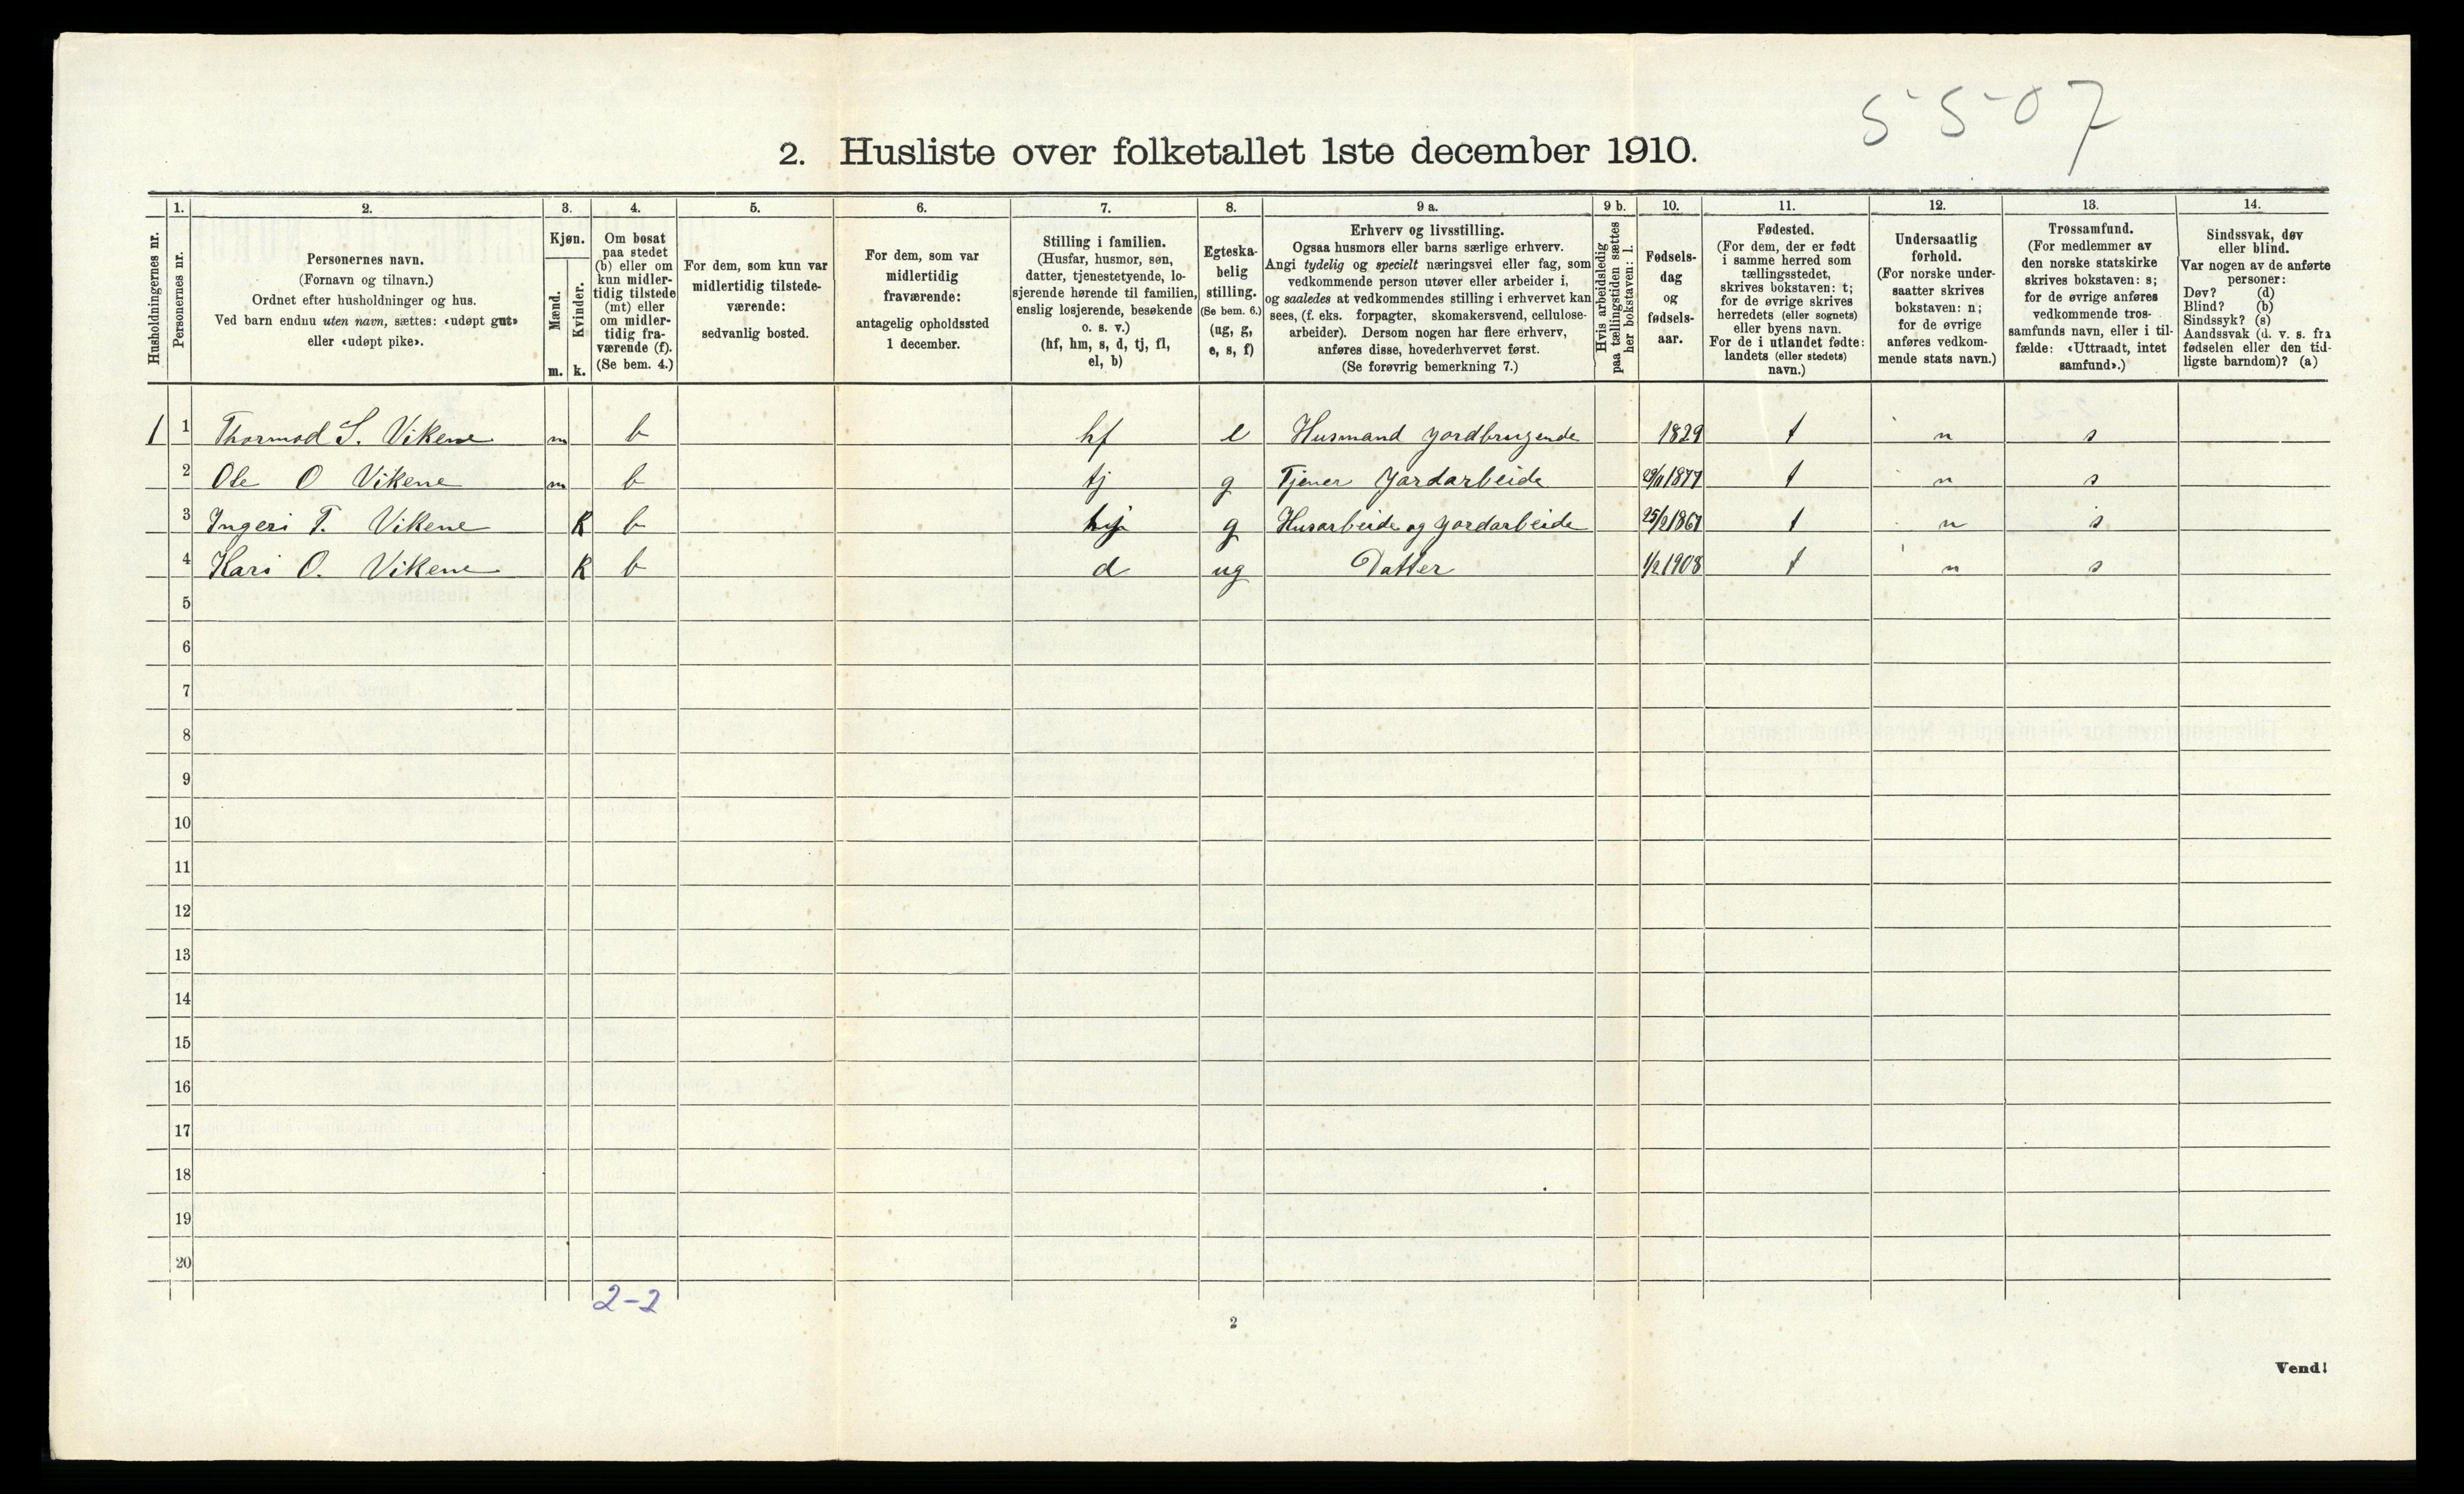 5507
2. Husliste over folketallet 1ste december 1910.
Husholdningernes nr.
1.
Personernes nr.
2.
Personernes navn.
(Fornavn og tilnavn.)
Ordnet efter husholdninger og hus.
Ved barn endnu uten navn, sættes: «udøpt gut»
eller «udøpt pike».
3.
Kjøn.
Mænd.
m.
Kvinder.
k.
4.
Om bosat
paa stedet
(b) eller om
kun midler-
tidig tilstede
(mt) eller
om midler-
tidig fra-
værende (f).
(Se bem. 4.)
5.
For dem, som kun var
midlertidig tilstede-
værende:
sedvanlig bosted.
6.
For dem, som var
midlertidig
fraværende:
antagelig opholdssted
1 december.
7.
Stilling i familien.
(Husfar, husmor, søn,
datter, tjenestetyende, lo-
sjerende hørende til familien,
enslig losjerende, besøkende
o. s. v.)
(hf, hm, s, d, tj, fl,
el, b)
8.
Egteska-
belig
stilling.
(Se bem. 6.)
(ug, g,
e, s, f)
9 a.
Erhverv og livsstilling.
Ogsaa husmors eller barns særlige erhverv.
Angi tydelig og specielt næringsvei eller fag, som
vedkommende person utøver eller arbeider i,
og saaledes at vedkommendes stilling i erhvervet kan
sees, (f. eks. forpagter, skomakersvend, cellulose-
arbeider). Dersom nogen har flere erhverv,
anføres disse, hovederhvervet først.
(Se forøvrig bemerkning 7.)
9 b.
Hvis arbeidsledig
paa tællingstiden sættes
her bokstaven: l.
10.
Fødsels-
dag
og
fødsels-
aar.
11.
Fødested.
(For dem, der er født
i samme herred som
tællingsstedet,
skrives bokstaven: t;
for de øvrige skrives
herredets (eller sognets)
eller byens navn.
For de i utlandet fødte:
landets (eller stedets)
navn.)
12.
Undersaatlig
forhold.
(For norske under-
saatter skrives
bokstaven: n;
for de øvrige
anføres vedkom-
mende stats navn.)
13.
Trossamfund.
(For medlemmer av
den norske statskirke
skrives bokstaven: s;
for de øvrige anføres
vedkommende tros-
samfunds navn, eller i til-
fælde: «Uttraadt, intet
samfund».)
14.
Sindssvak, døv
eller blind.
Var nogen av de anførte
personer:
Døv? (d)
Blind? (b)
Sindssyk? (s)
Aandssvak (d. v. s. fra
fødselen eller den tid-
ligste barndom)? (a)
1 1 Thormod S. Vikene m b hf e Husmand Jordbrugende 1829 t n s
2 Ole O Vikene m b tj g Tjener Jordarbeide 29/11 1877 t n s
3 Ingeri T. Vikene k b g Husarbeide og Jordarbeide t n s
4 Kari O. Vikene k b d ug Datter 1/2 1908 t n s
5
6
7
8
9
10
11
12
13
14
15
16
17
18
19
20
2-2
2
Vend!